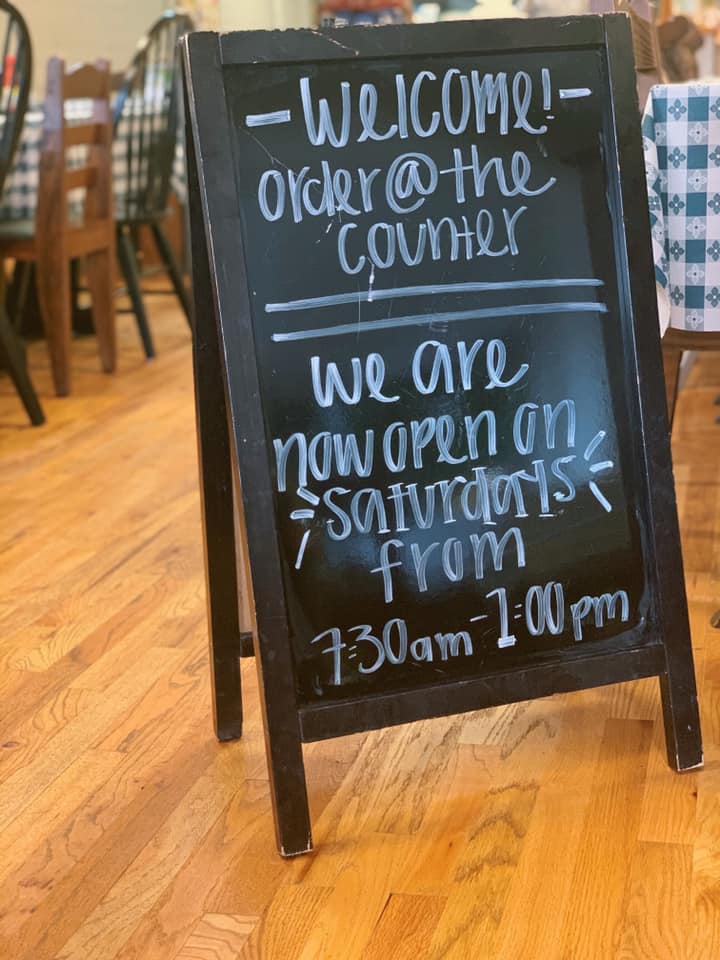 - Welcome! -
order @ the
counter
we are
now open on
saturdays
from
7:30am - 1:00pm